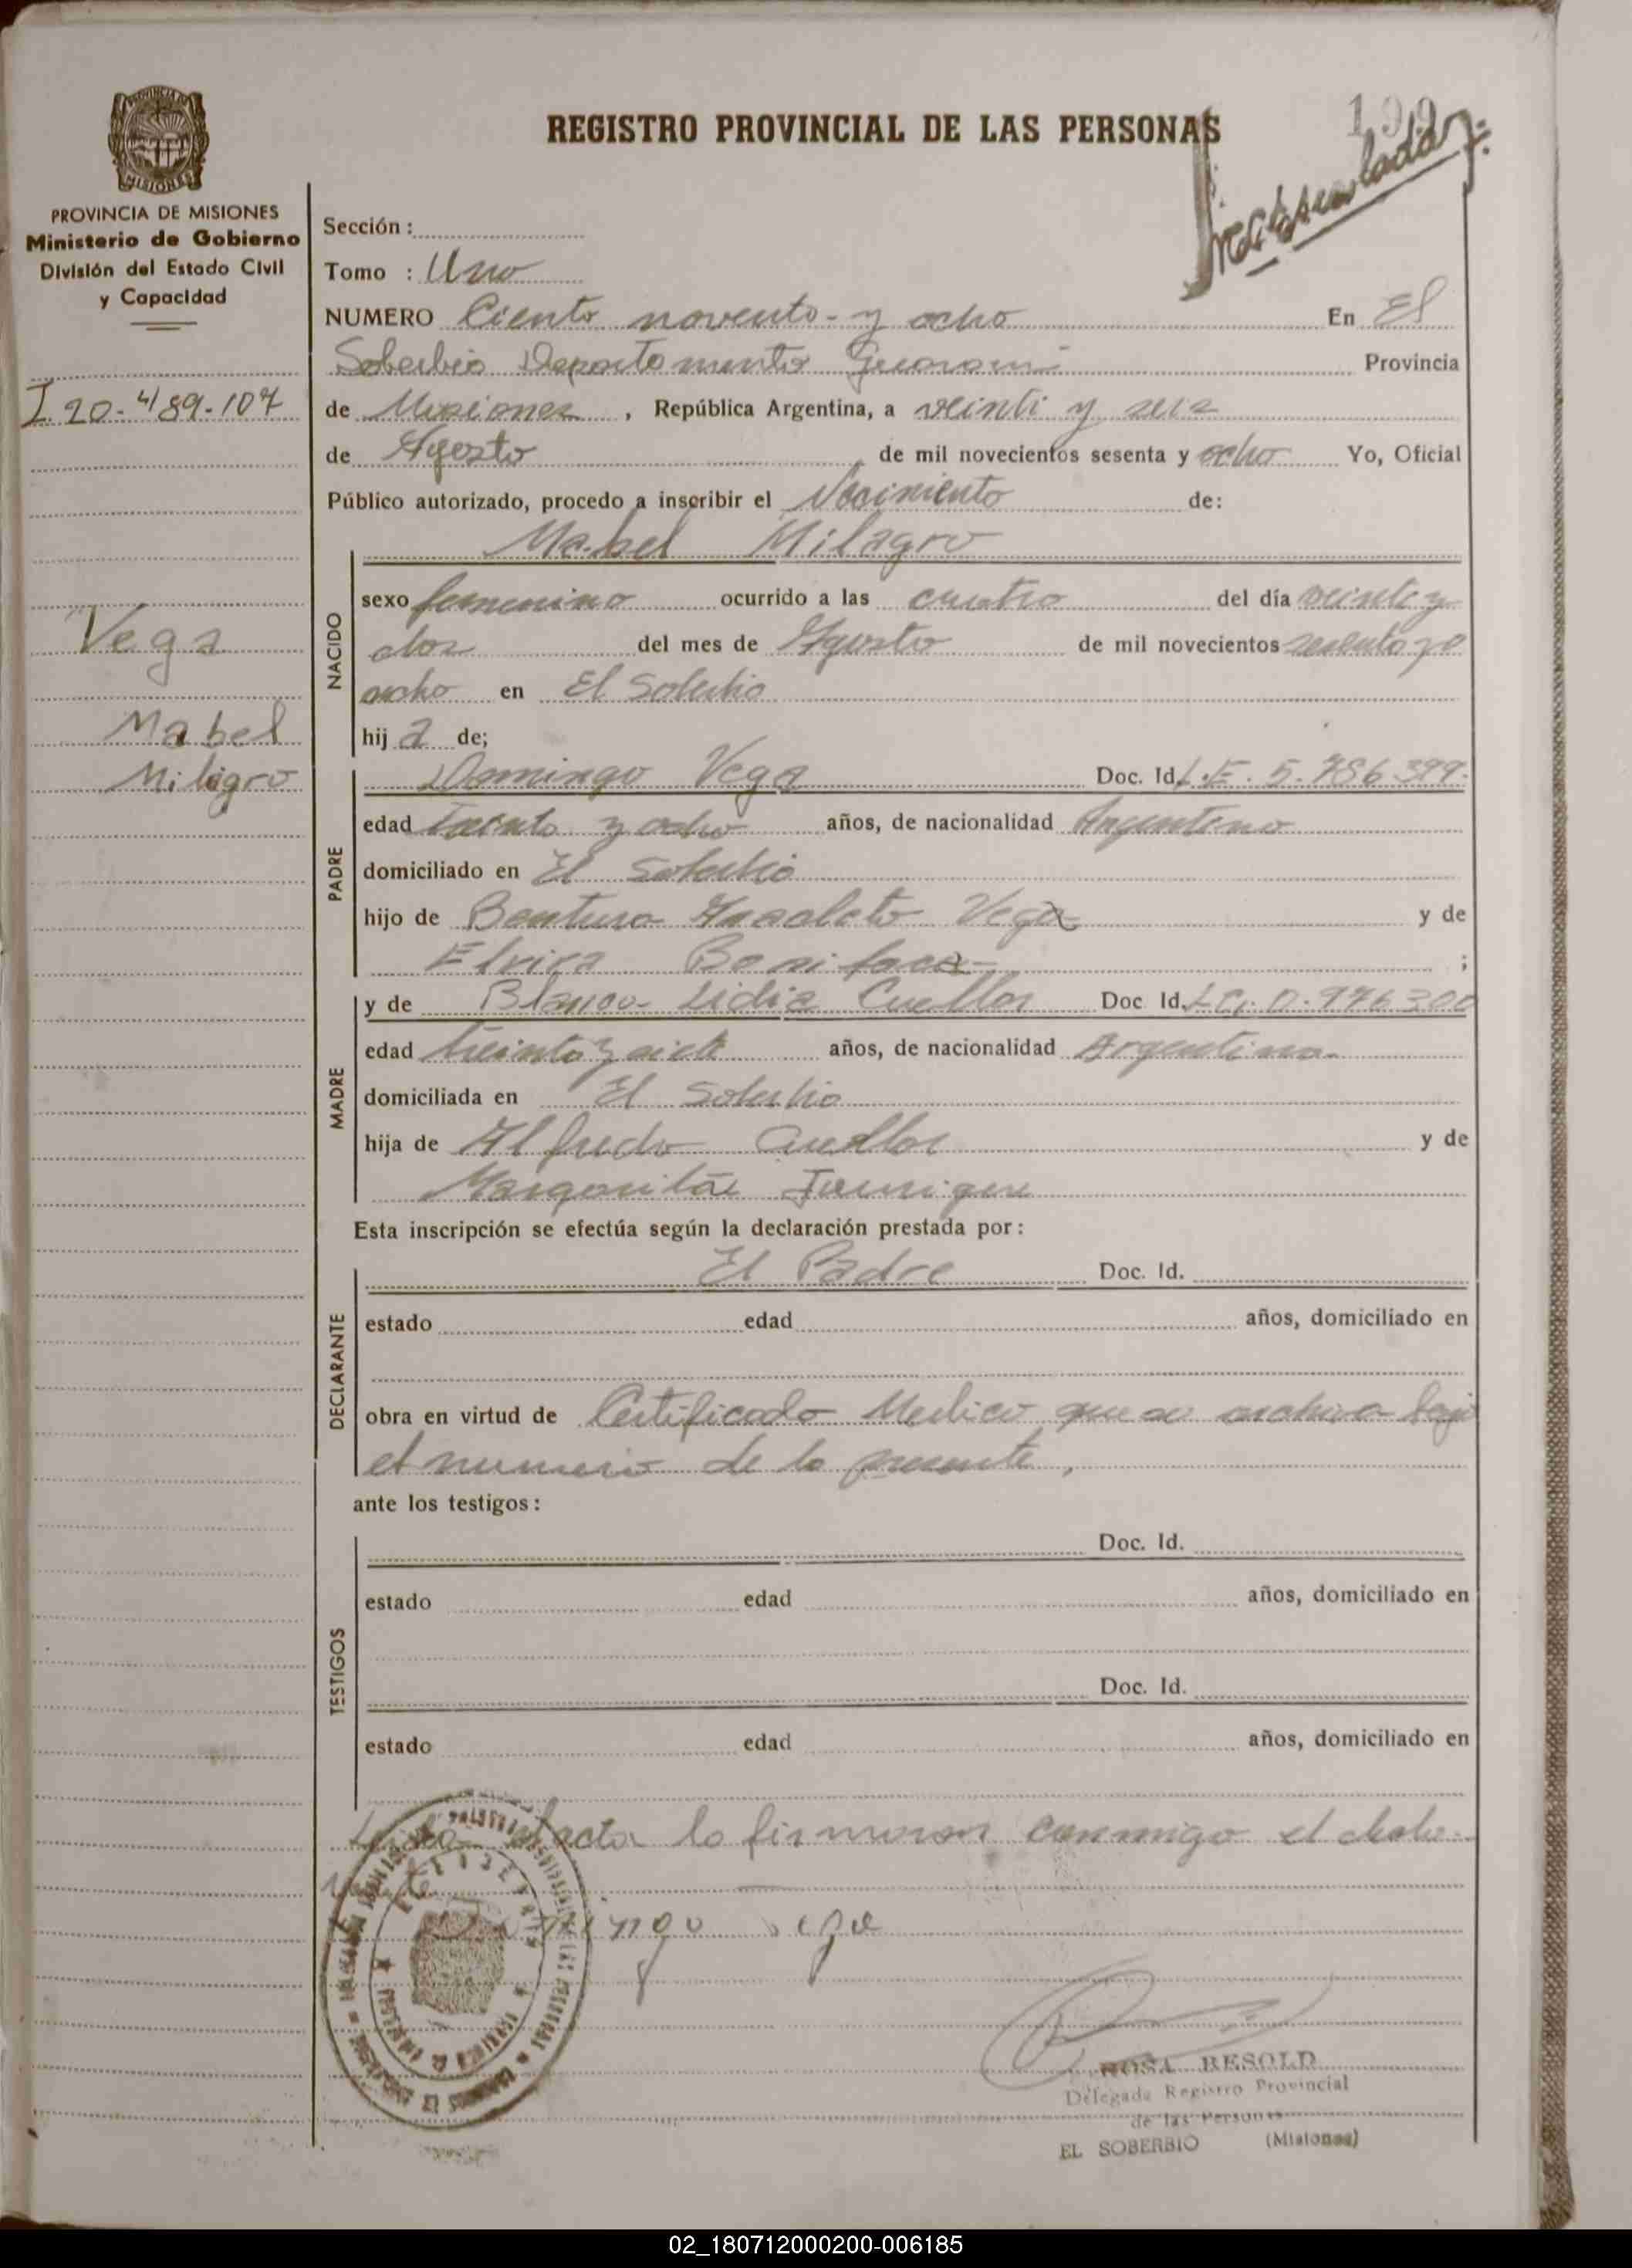 REGISTRO PROVINCIAL DE LAS PERSONAS
PROVINCIA DE MISIONES
Ministerio de Gobierno
División del Estado Civil
y Capacidad
I 20.489.107
Vega
Mabel
Milagro
Sección :
Tomo : Uno
NUMERO Ciento novento y ocho En El
Soberbio Departamento Guarani Provincia
de Misiones, República Argentina, a veinti y seis
de Agosto de mil novecientos sesenta y ocho Yo, Oficial
Público autorizado, procedo a inscribir el Nacimiento de:
Mabel Milagro
NACIDO
sexo femenino ocurrido a las cuatro del día veinte y
dos del mes de Agosto de mil novecientos sesenta y
ocho en El Soberbio
hija de;
PADRE
Domingo Vega Doc. Id. L.E. 5.786.399
edad treinta y ocho años, de nacionalidad Argentino
domiciliado en El Soberbio
hijo de Bentura Anacleto Vega y de
Elvira Boniface ;
MADRE
y de Blanca Lidia Cuellar Doc Id. L.C. 0.976.300
edad treinta y siete años, de nacionalidad Argentina
domiciliada en El Soberbio
hija de Alfredo Cuellar y de
Margarita
Esta inscripción se efectúa según la declaración prestada por :
DECLARANTE
El Padre Doc. Id.
estado edad años, domiciliado en
obra en virtud de Certificado Medico que se archiva bajo
el numero de la presente,
ante los testigos :
TESTIGOS
Doc. Id.
estado edad años, domiciliado en
Doc. Id.
estado edad años, domiciliado en
acta lo firmaron conmigo el decla-
rante
Domingo vega
ROSA RESOLD
Delegada Registro Provincial
de las Personas
EL SOBERBIO (Misiones)
02_180712000200-006185